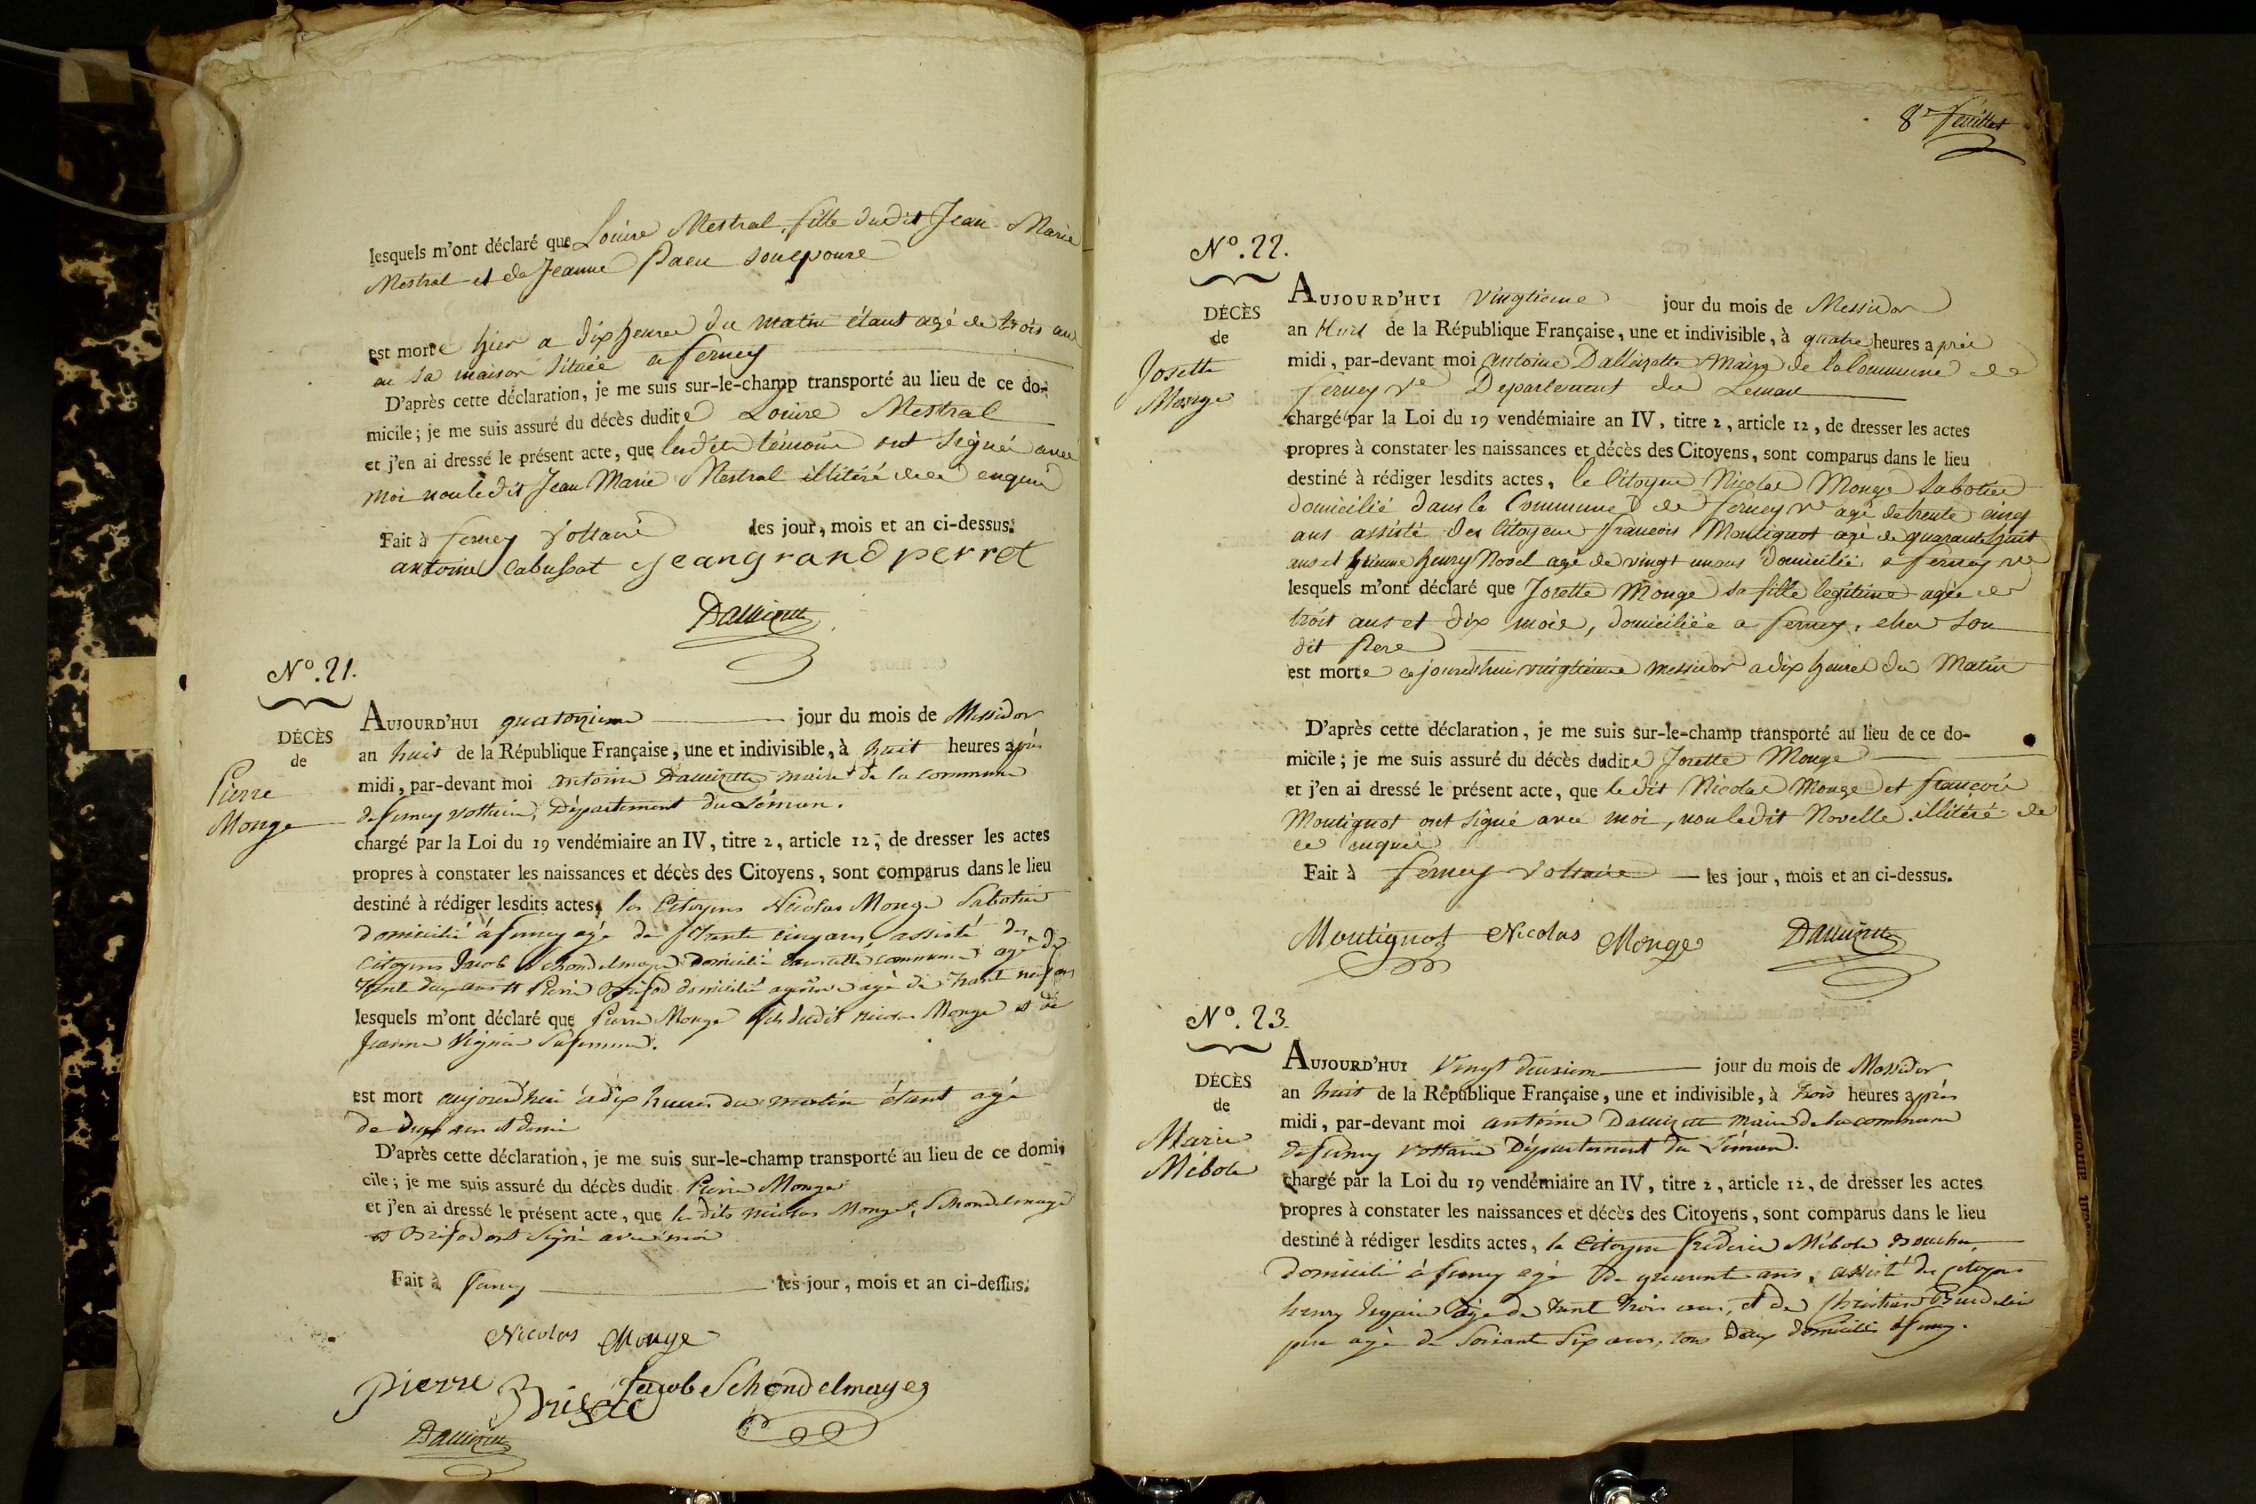 lesquels m'ont déclaré que Louise Mestral, fille dudit Jean Marie
Mestral et de Jeanne son epouse
est morte hier a dix heures du matin étant agé de trois ans
en sa maison située a ferney
D'après cette déclaration, je me suis sur-le-champ transporté au lieu de ce do-
micile; je me suis assuré du décès dudite Louise Mestral
et j'en ai dressé le présent acte, que lesdits témoins ont signé avec
moi non ledit Jean Marie Mestral illitéré de ce enquis
Fait à ferney Voltaire les jour, mois et an ci-dessus.
antoine Cabussat jean grand perret
Dallizette
N.º 21.
DÉCÈS
de
Pierre
Monge
AUJOURD'HUI quatorzieme jour du mois de Messidor
an huit de la République Française, une et indivisible, à huit heures après
midi, par-devant moi antoine Dallizette maire de la commune
de ferney voltaire, Département du Léman.
chargé par la Loi du 19 vendémiaire an IV, titre 2, article 12, de dresser les actes
propres à constater les naissances et décès des Citoyens, sont comparus dans le lieu
destiné à rédiger lesdits actes, les Citoyens Nicolas Monge Sabotier
domicilié à ferney agé de trente cinq ans, assisté des
citoyens Jacob Schondelmayer domicilié dans cette commune agé de
trente deux ans et Pierre Brifod domicilié agé de trente neuf ans
lesquels m'ont déclaré que Pierre Monge fils dudit nicolas Monge et de
Jeanne sa femme.
est mort aujourd'hui à dix heures du matin étant agé
de deux ans et demi
D'après cette déclaration, je me suis sur-le-champ transporté au lieu de ce domi-
cile; je me suis assuré du décès dudit Pierre Monge
et j'en ai dressé le présent acte, que les dits nicolas Monge, Schondelmayer
et Brifod ont signé avec moi
Fait à ferney les jour, mois et an ci-dessus.
Nicolas Monge
Pierre Brifod Jacob Schondelmayer
Dallizette
8e feuillet
N.º 22.
DÉCÈS
de
Josette
Monge
AUJOURD'HUI vingtieme jour du mois de Messidor
an huit de la République Française, une et indivisible, à quatre heures après
midi, par-devant moi antoine Dallizette Maire de la Commune de
ferney Vre Departement du Leman
chargé par la Loi du 19 vendémiaire an IV, titre 2, article 12, de dresser les actes
propres à constater les naissances et décès des Citoyens, sont comparus dans le lieu
destiné à rédiger lesdits actes, le Citoyen Nicolas Monge Sabotier
domicilié dans la Commune de ferney Vre agé de trente cinq
ans assisté des Citoyens francois Montignot agé de quarante huit
ans et henry Novel agé de vingt un ans domicilié a ferney Vre
lesquels m'ont déclaré que Josette Monge sa fille legitime agée de
trois ans et dix mois, domiciliée a ferney, chez son
dit Pere
est morte cejourd'hui vingtieme messidor a dix heures du Matin
D'après cette déclaration, je me suis sur-le-champ transporté au lieu de ce do-
micile; je me suis assuré du décès dudite Josette Monge
et j'en ai dressé le présent acte, que le dit Nicolas Monge et francois
Montignot ont signé avec moi, non ledit Novelle illitéré de
ce enquis
Fait à ferney Voltaire les jour, mois et an ci-dessus.
Montignot Nicolas Monge Dallizette
N.º 23.
DÉCÈS
de
Marie
Mébold
AUJOURD'HUI Vingt deuxieme jour du mois de Messidor
an huit de la République Française, une et indivisible, à trois heures après
midi, par-devant moi antoine Dallizette maire de la commune
de ferney voltaire Département du Léman.
chargé par la Loi du 19 vendémiaire an IV, titre 2, article 12, de dresser les actes
propres à constater les naissances et décès des Citoyens, sont comparus dans le lieu
destiné à rédiger lesdits actes, le Citoyen frederic Mébold Boucher
domicilié à ferney agé de quarante ans, assisté des citoyens
henry agé de trente trois ans, et de Christian
père agé de soixante six ans, tous deux domiciliés à ferney.